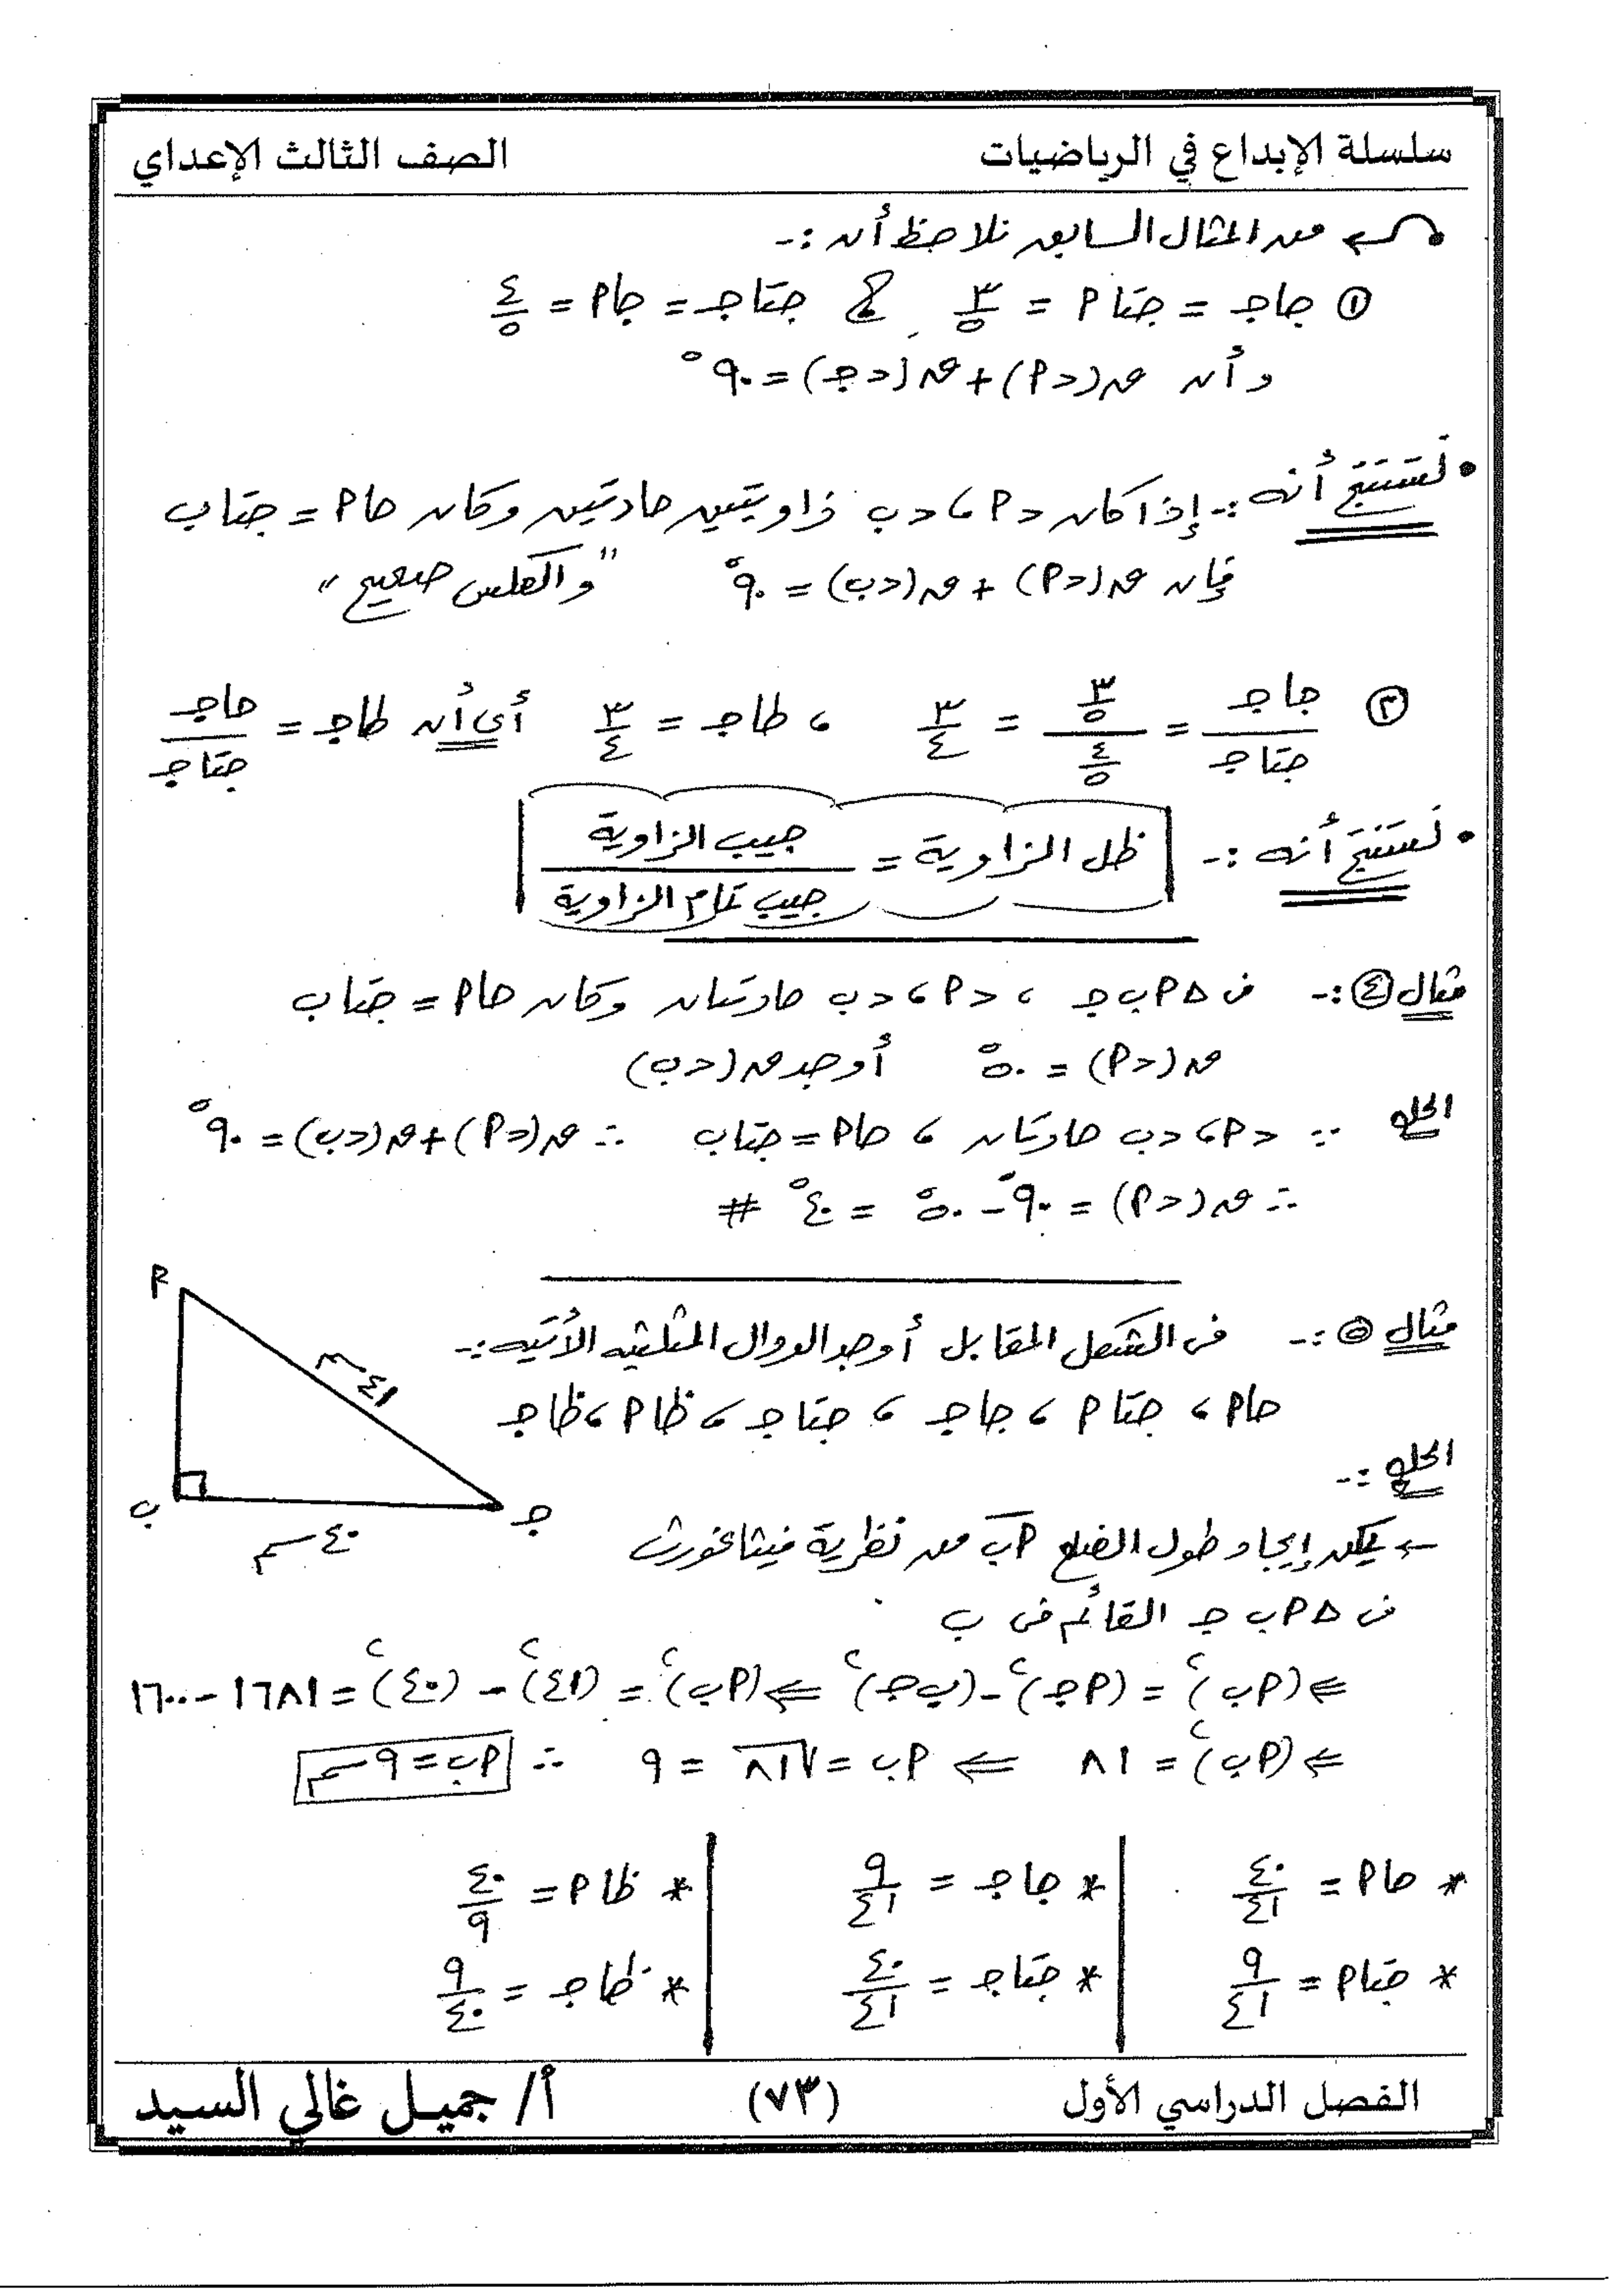 سلسلة الإبداع في الرياضيات
الصف الثالث الإعداي
من المثال السابق نلاحظ أن :-
① جاجـ = جتا٢ = ٣/٥ ، جتاجـ = جا٢ = ٤/٥
وأن ق(∠أ) + ق(∠جـ) = ٩٠°
• نستنتج أنه :- إذا كان ∠أ ، ∠ب زاويتين حادتين وكان جاأ = جتاب
فإن ق(∠أ) + ق(∠ب) = ٩٠° "والعكس صحيح"
② جاجـ/جتاجـ = (٣/٥)/(٤/٥) = ٣/٤ ، طاجـ = ٣/٤ أى أن طاجـ = جاجـ/جتاجـ
• نستنتج أنه :- ظل الزاوية = جيب الزاوية/جيب تمام الزاوية
مثال ④ :- فى △أ ب جـ ، ∠أ ، ∠ب حادتان وكان جاأ = جتاب
ق(∠أ) = ٥٠° أوجد ق(∠ب)
الحل ∵ ∠أ ، ∠ب حادتان ، جاأ = جتاب ∴ ق(∠أ) + ق(∠ب) = ٩٠°
∴ ق(∠أ) = ٩٠° - ٥٠° = ٤٠° #
مثال ⑤ :- فى الشكل المقابل أوجد الدوال المثلثيه الأتيه :-
جاأ ، جتاأ ، جاجـ ، جتاجـ ، ظاأ ، ظاجـ
أ
٤١ سم
ب
جـ
٤٠ سم
الحل :-
← يمكن إيجاد طول الضلع أب من نظرية فيثاغورث
فى △أ ب جـ القائم فى ب
⇐ (أب)² = (أجـ)² - (ب جـ)² ⇐ (أب)² = (٤١)² - (٤٠)² = ١٦٨١ - ١٦٠٠
⇐ (أب)² = ٨١ ⇐ أب = √٨١ = ٩ ∴ أب = ٩ سم
* جاأ = ٤٠/٤١ * جاجـ = ٩/٤١ * ظاأ = ٤٠/٩
* جتاأ = ٩/٤١ * جتاجـ = ٤٠/٤١ * ظاجـ = ٩/٤٠
الفصل الدراسي الأول
(٧٣)
أ/ جميل غالي السيد